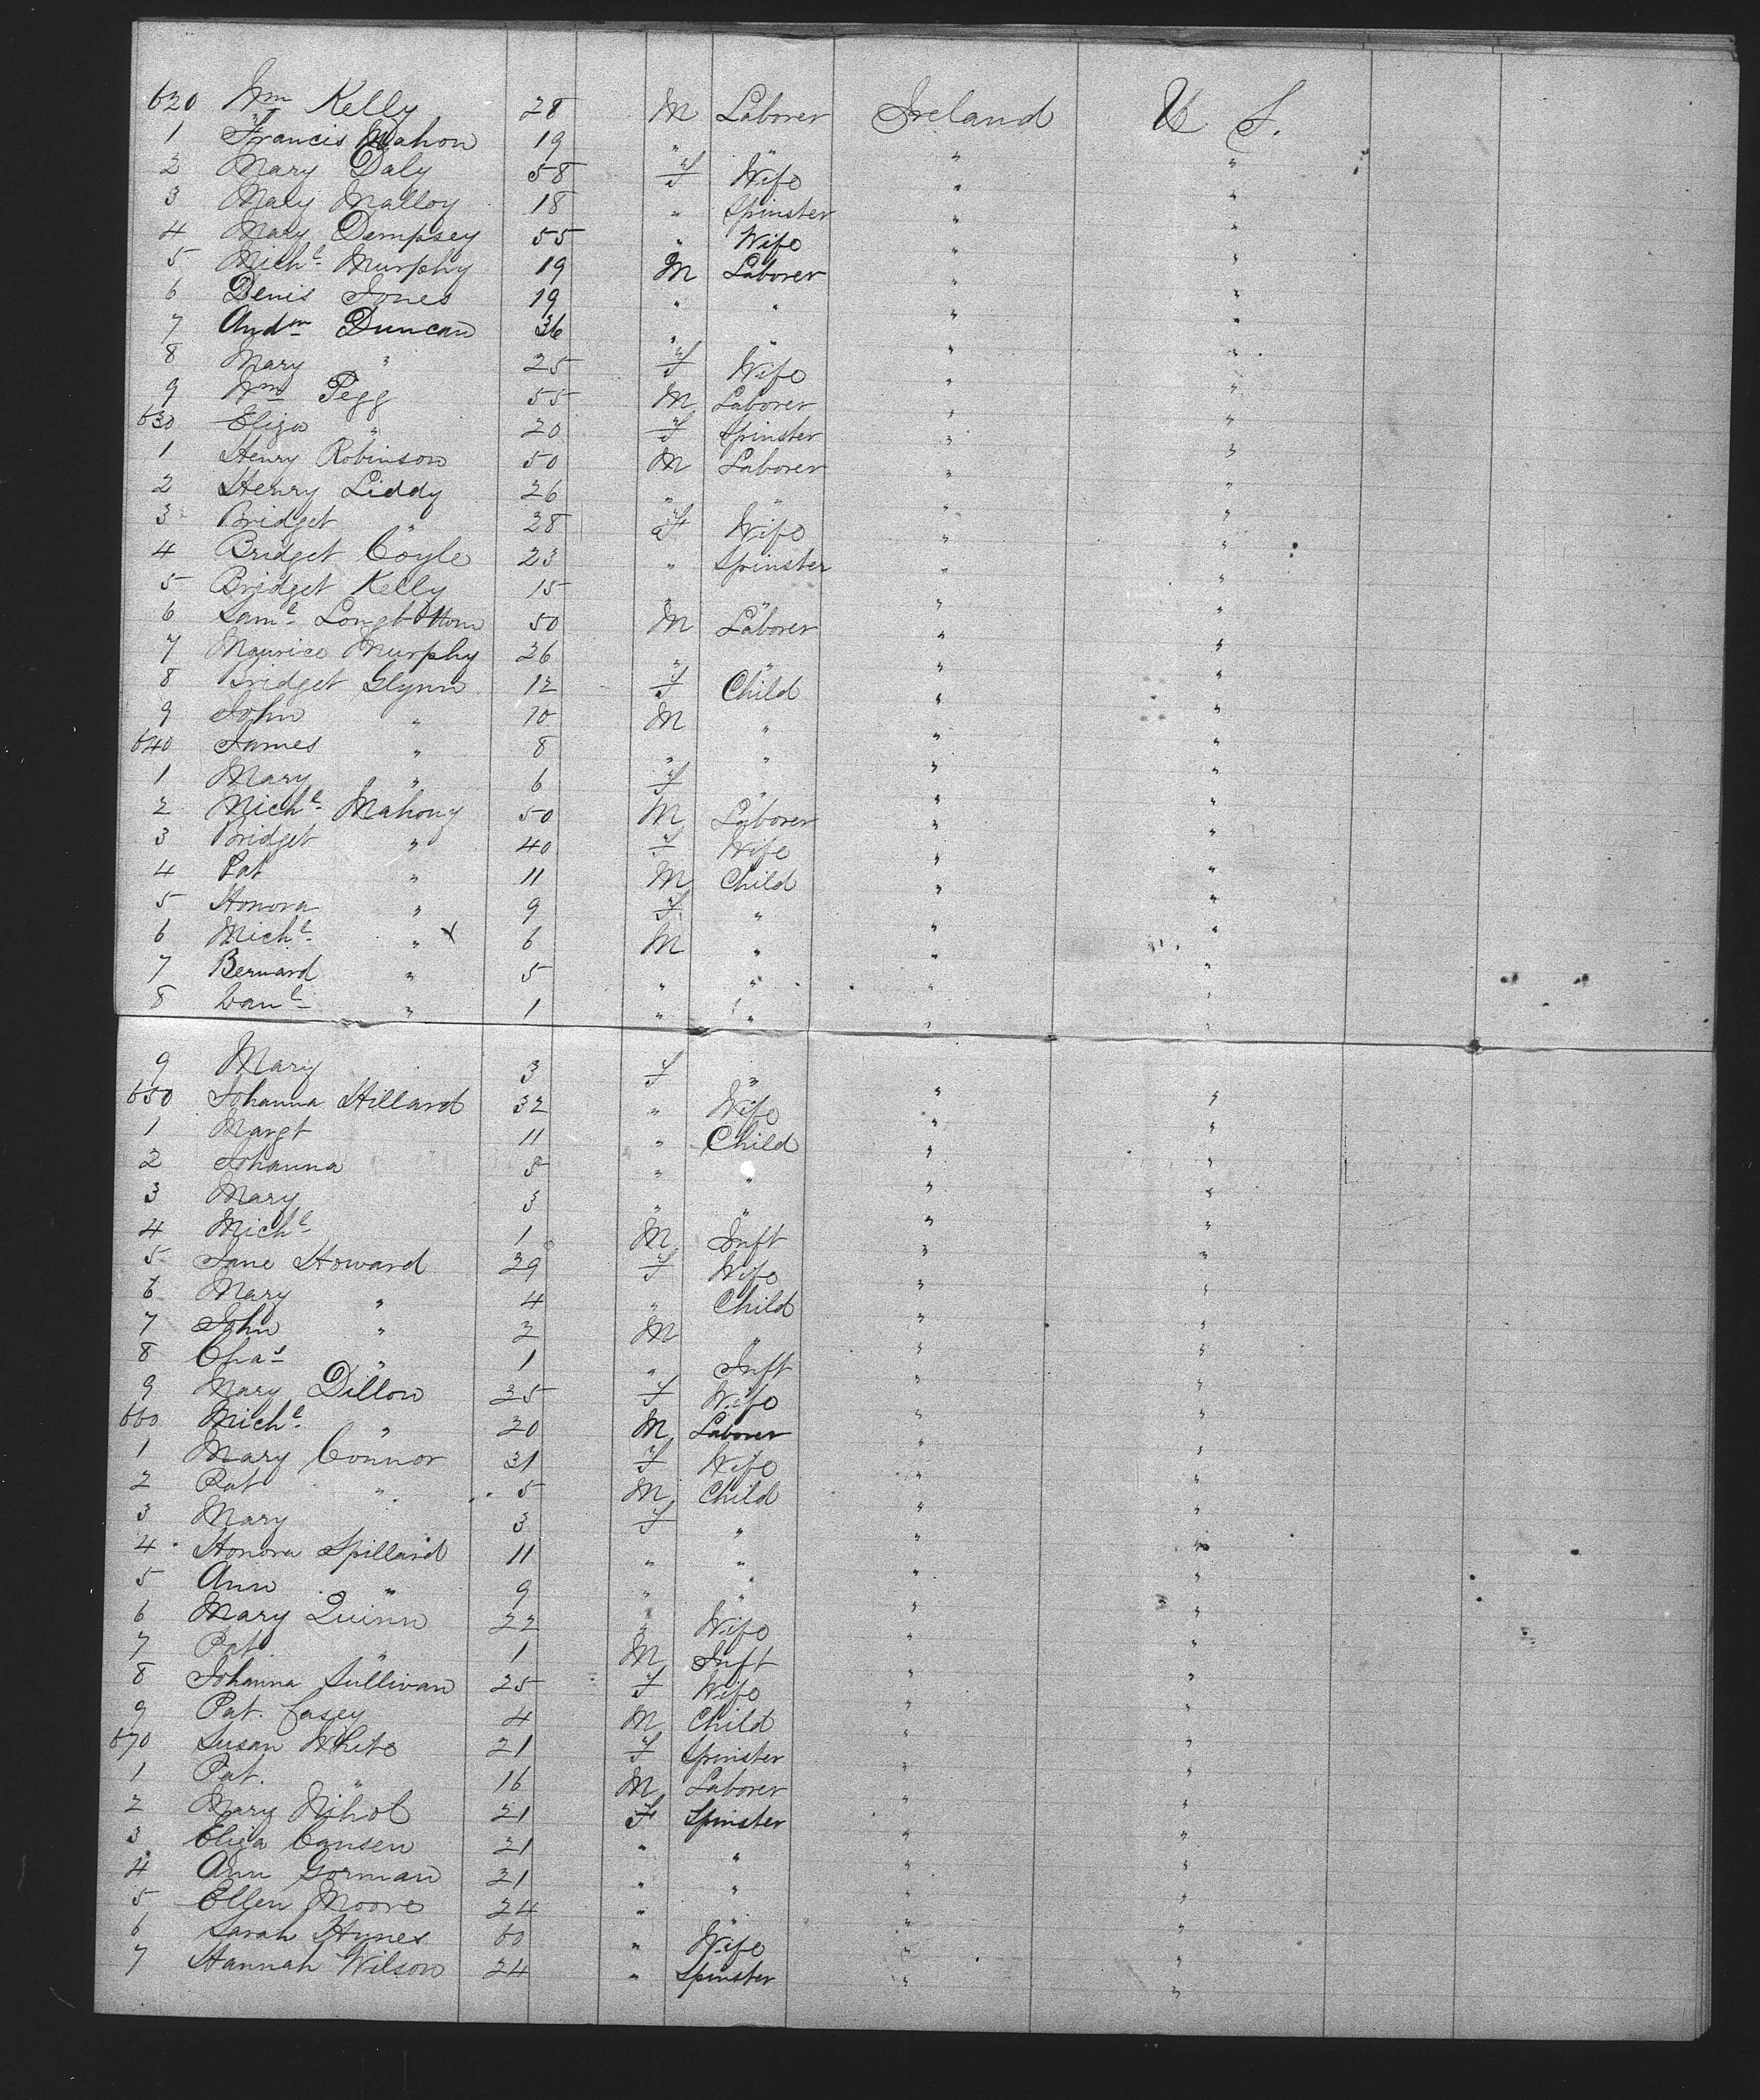 620 Wm Kelly 28 M Laborer Ireland U S.
1 Francis Mahon 19 " " " "
2 Mary Daly 58 F Wife " "
3 Mary Malloy 18 " Spinster " "
4 Mary Dempsey 55 " Wife " "
5 Michl Murphy 19 M Laborer " "
6 Denis Jones 19 " " " "
7 Andw Duncan 36 " " " "
8 Mary " 25 F Wife " "
9 Wm Pegg 55 M Laborer " "
630 Eliza " 20 F Spinster " "
1 Henry Robinson 50 M Laborer " "
2 Henry Liddy 26 " " " "
3 Bridget " 28 F Wife " "
4 Bridget Coyle 23 " Spinster " "
5 Bridget Kelly 15 " " " "
6 Saml Longbottom 50 M Laborer " "
7 Maurice Murphy 26 " " " "
8 Bridget Glynn 12 F Child " "
9 John " 10 M " " "
640 James " 8 " " " "
1 Mary " 6 F " " "
2 Michl Mahony 50 M Laborer " "
3 Bridget " 40 F Wife " "
4 Pat " 11 M Child " "
5 Honora " 9 F " " "
6 Michl " x 6 M " " "
7 Bernard " 5 " " " "
8 Danl " 1 " " " "
9 Mary 3 F " " "
650 Johanna Hillard 32 " Wife " "
1 Margt 11 " Child " "
2 Johanna 5 " " " "
3 Mary 3 " " " "
4 Michl 1 M Inft " "
5 Jane Howard 29 F Wife " "
6 Mary " 4 " Child " "
7 John " 2 M " " "
8 Chas " 1 " Inft " "
9 Mary Dillon 25 F Wife " "
660 Michl " 20 M Laborer " "
1 Mary Connor 31 F Wife " "
2 Pat " 5 M Child " "
3 Mary 3 F " " "
4 Honora Spillard 11 " " " "
5 Ann " 9 " " " "
6 Mary Quinn 22 " Wife " "
7 Pat " 1 M Inft " "
8 Johanna Sullivan 25 F Wife " "
9 Pat. Casey 4 M Child " "
670 Susan White 21 F Spinster " "
1 Pat. " 16 M Laborer " "
2 Mary Nihol 21 F Spinster " "
3 Eliza Cansen 21 " " " "
4 Ann Gorman 21 " " " "
5 Ellen Moore 24 " " " "
6 Sarah Hynes 60 " Wife " "
7 Hannah Wilson 24 " Spinster " "